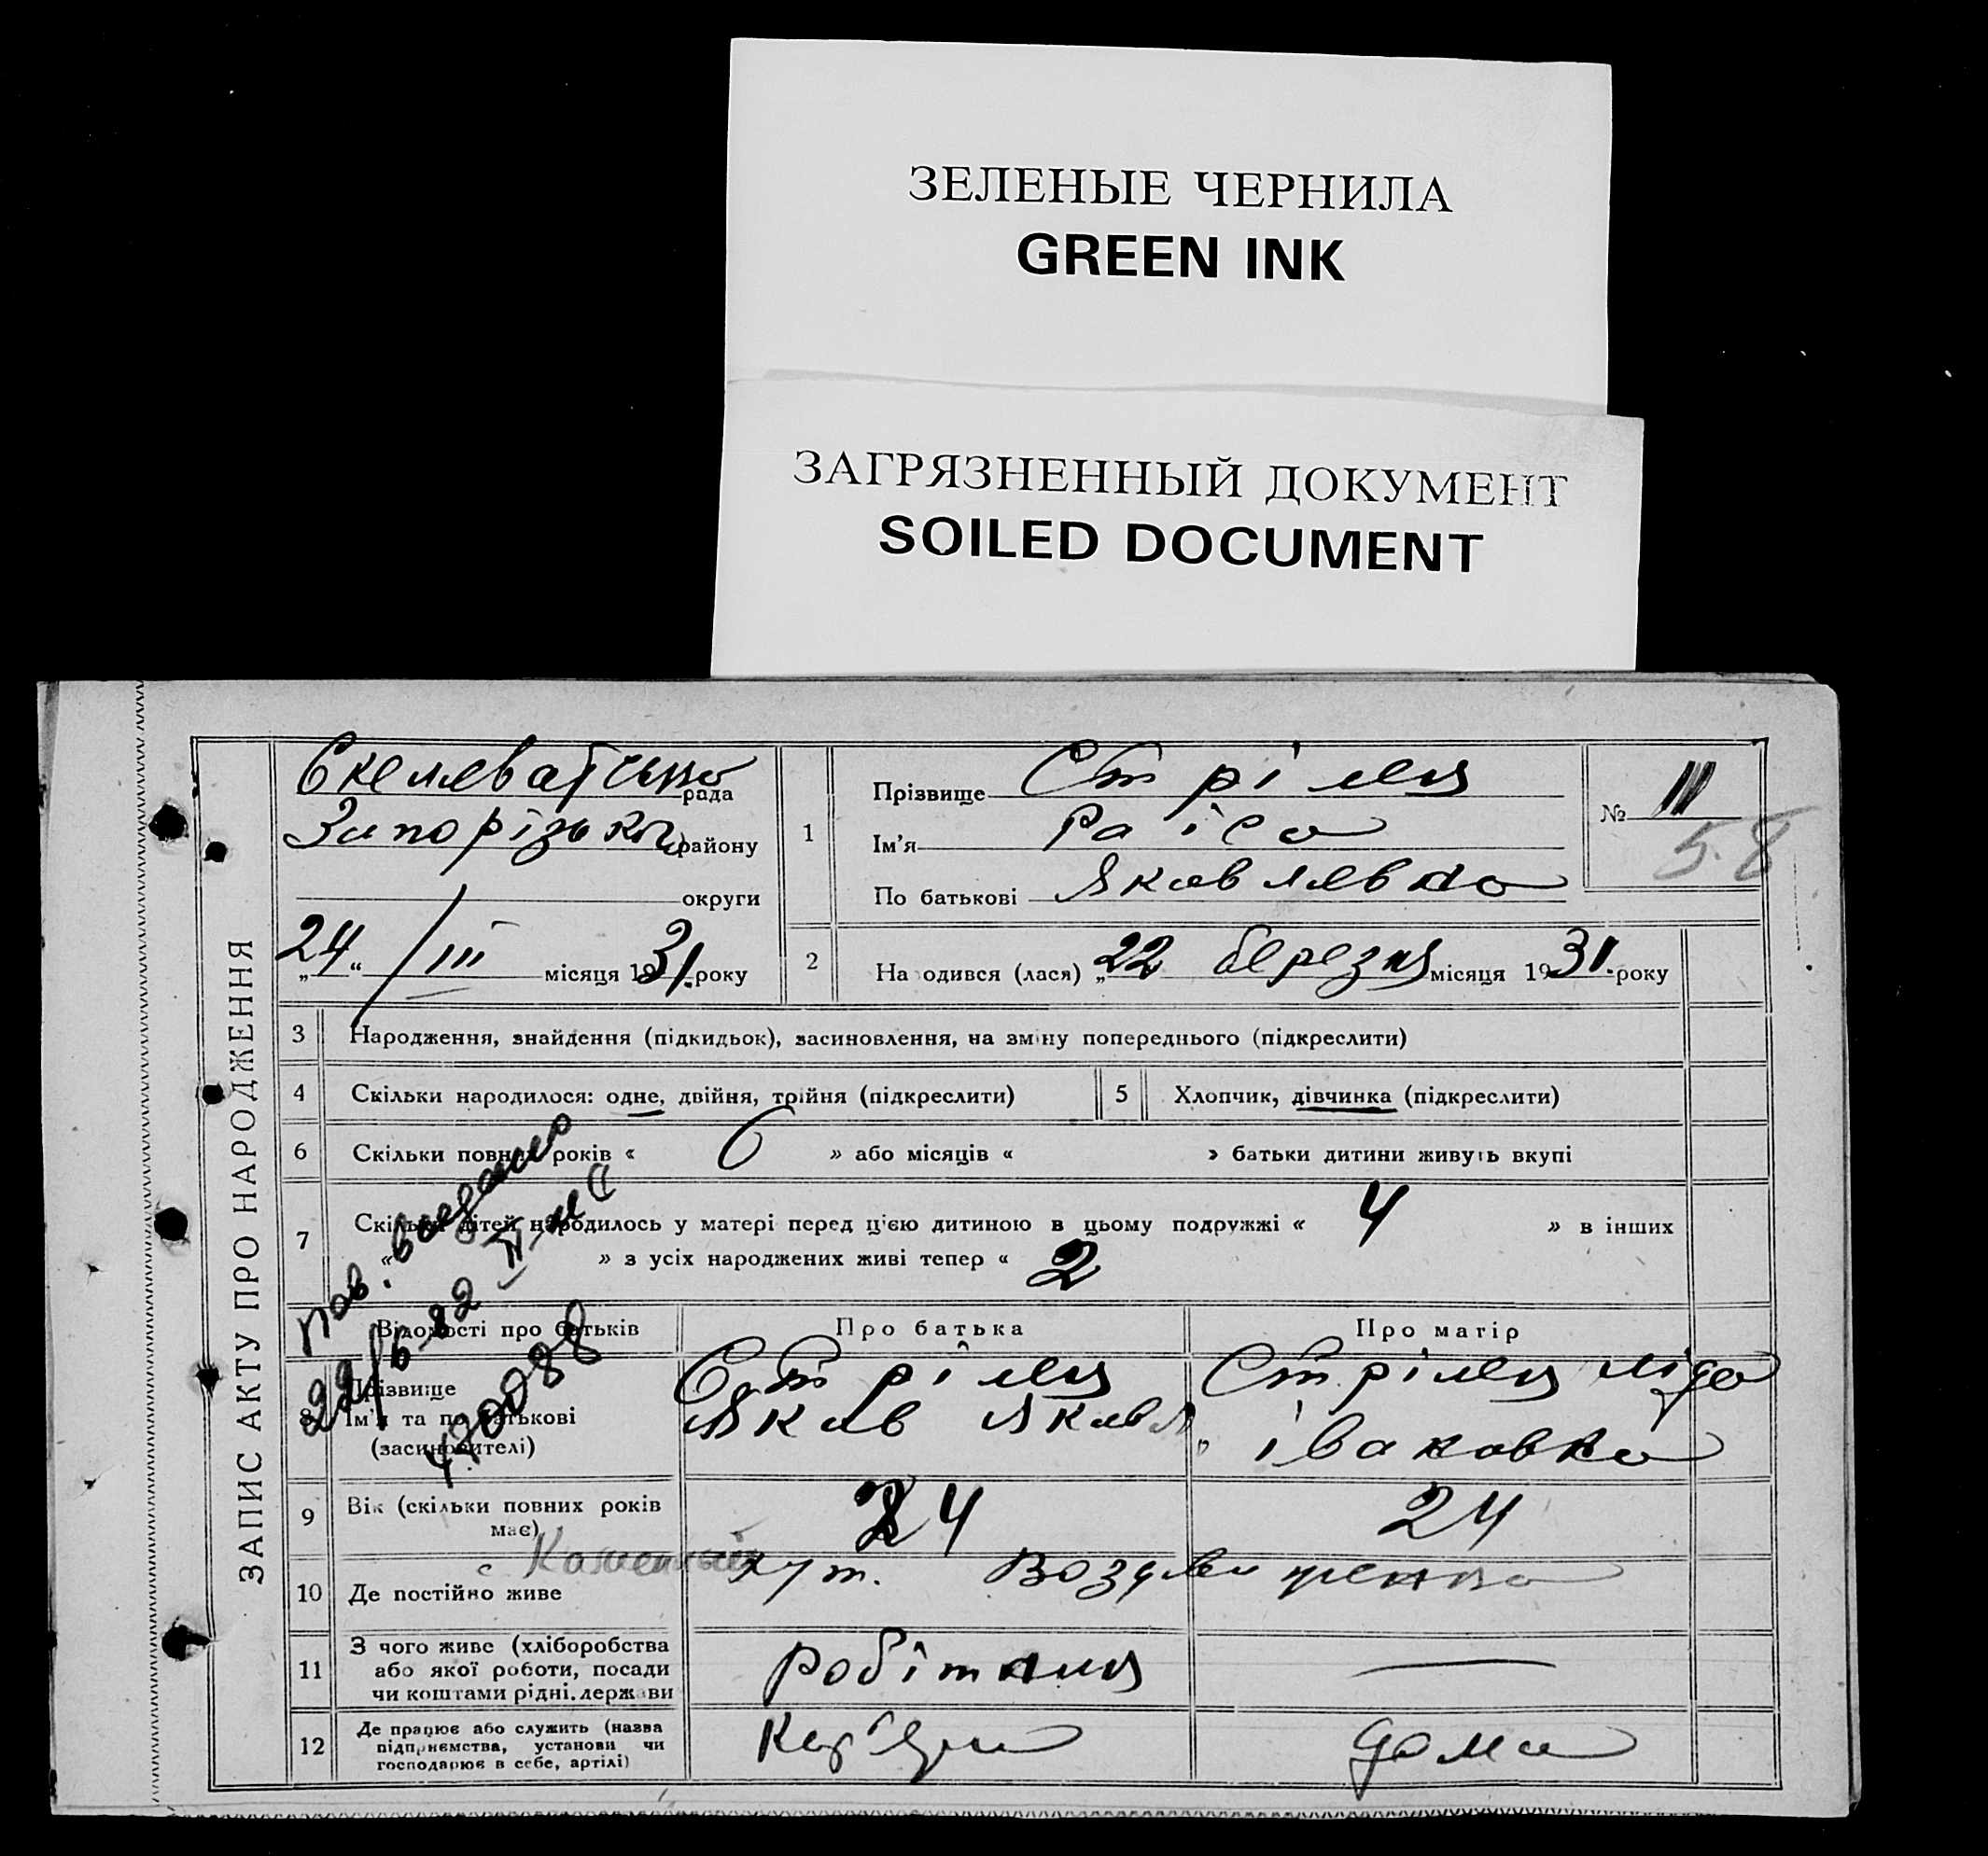 ЗЕЛЕНЫЕ ЧЕРНИЛА
GREEN INK
ЗАГРЯЗНЕННЫЙ ДОКУМЕНТ
SOILED DOCUMENT
ЗАПИС АКТУ ПРО НАРОДЖЕННЯ
рада
Запорізького району
округи
„24“ / III місяця 1931. року
1
Прізвище Стрілец
Ім'я Раїса
По батькові Яковлевна
№ 11
58
2
На одився (лася) „22 березня місяця 1931. року
3 Народження, знайдення (підкидьок), засиновлення, на зміну попереднього (підкреслити)
4 Скільки народилося: одне, двійня, трійня (підкреслити)
5 Хлопчик, дівчинка (підкреслити)
6 Скільки повних років « 6 » або місяців « » батьки дитини живуть вкупі
7 Скільки дітей народилось у матері перед цією дитиною в цьому подружжі « 4 » в інших
« » з усіх народжених живі тепер « 2
Пов.
22/6-82
Відомості про батьків
Про батька
Про матір
8 Прізвище
Ім'я та по батькові
(засиновителі)
Стрілец
Яков Яковл
Стрілец Ліда
Івановна
9 Вік (скільки повних років
має)
24
24
с
10 Де постійно живе
хут.
11 З чого живе (хліборобства
або якої роботи, посади
чи коштами рідні, держави
робітник
12 Де працює або служить (назва
підприємства, установи чи
господарює в себе, артілі)
дома